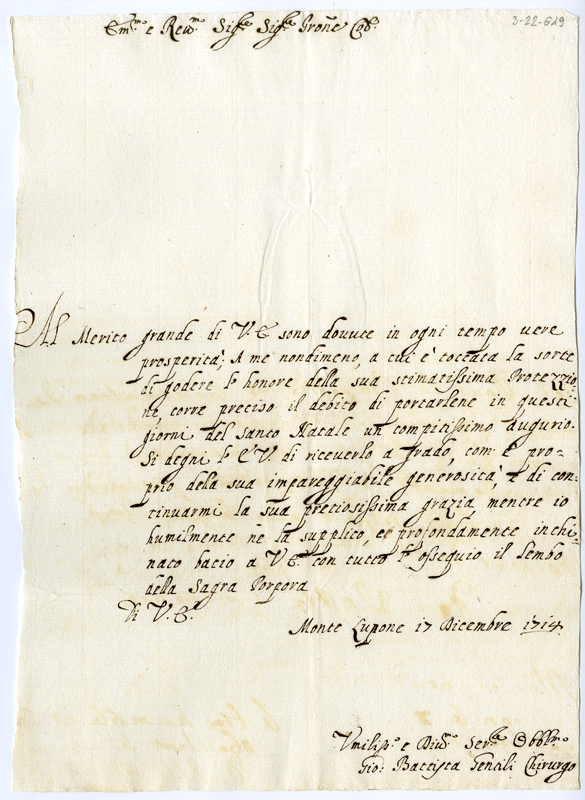 3-22-619
Em.mo e Rev.mo Sig.re Sig.re Prone Col.
Al Merito grande di V. E. sono dovute in ogni tempo vere
prosperità; A me nondimeno, a cui è toccata la sorte
di godere l'honore della sua stimatissima Protezzio
ne, corre preciso il debito di portarlene in questi
giorni del santo Natale un compitissimo augurio.
Si degni l'E V. di riceverlo a grado, com'è pro-
prio della sua impareggiabile generosità, e di con-
tinuarmi la sua preciosissima grazia, mentre io
humilmente ne la supplico, et profondamente inchi-
nato bacio a V E. con tutto l'ossequio il lembo
della Sagra Porpora
Di V. E.
Monte Lupone 17 Dicembre 1714.
Vmiliss.o e Div.mo Ser.re Obbl.mo
Gio: Battista Gentili Chirurgo